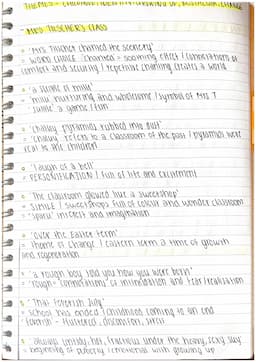 THEMES - CHILDHOOD, IDENTITY, GROWING UP, NOSTALGIA, CHANGE
MRS TILSCHER'S CLASS
- 'Mrs Tilscher chanted the scenery'
= WORD CHOICE 'chanted' = soothing effect / connotations of
comfort and security / repetitive chanting creates a world
- 'a skittle of milk'
= 'milk' nurturing and wholesome / symbol of Mrs T
'skittle' a game / fun
- 'chalky pyramids rubbed into dust'
= 'chalky' refers to a classroom of the past / pyramids were
real to the children
- 'laugh of a bell'
= PERSONIFICATION / full of life and excitement
- 'The classroom glowed like a sweetshop'
= SIMILE / sweetshops full of colour and wonder classroom
= 'sparks' interest and imagination
- 'Over the Easter term'
= theme of change / Eastern term a time of growth
and regeneration
- 'a rough boy told you how you were born'
= 'rough' connotations of intimidation and fear / realisation
- 'That feverish July'
= school has ended / childhood coming to an end
'feverish' - flustered,
- 'always untidy, hot, fractious under the heavy, sexy sky'
= beginning of puberty / with growing up